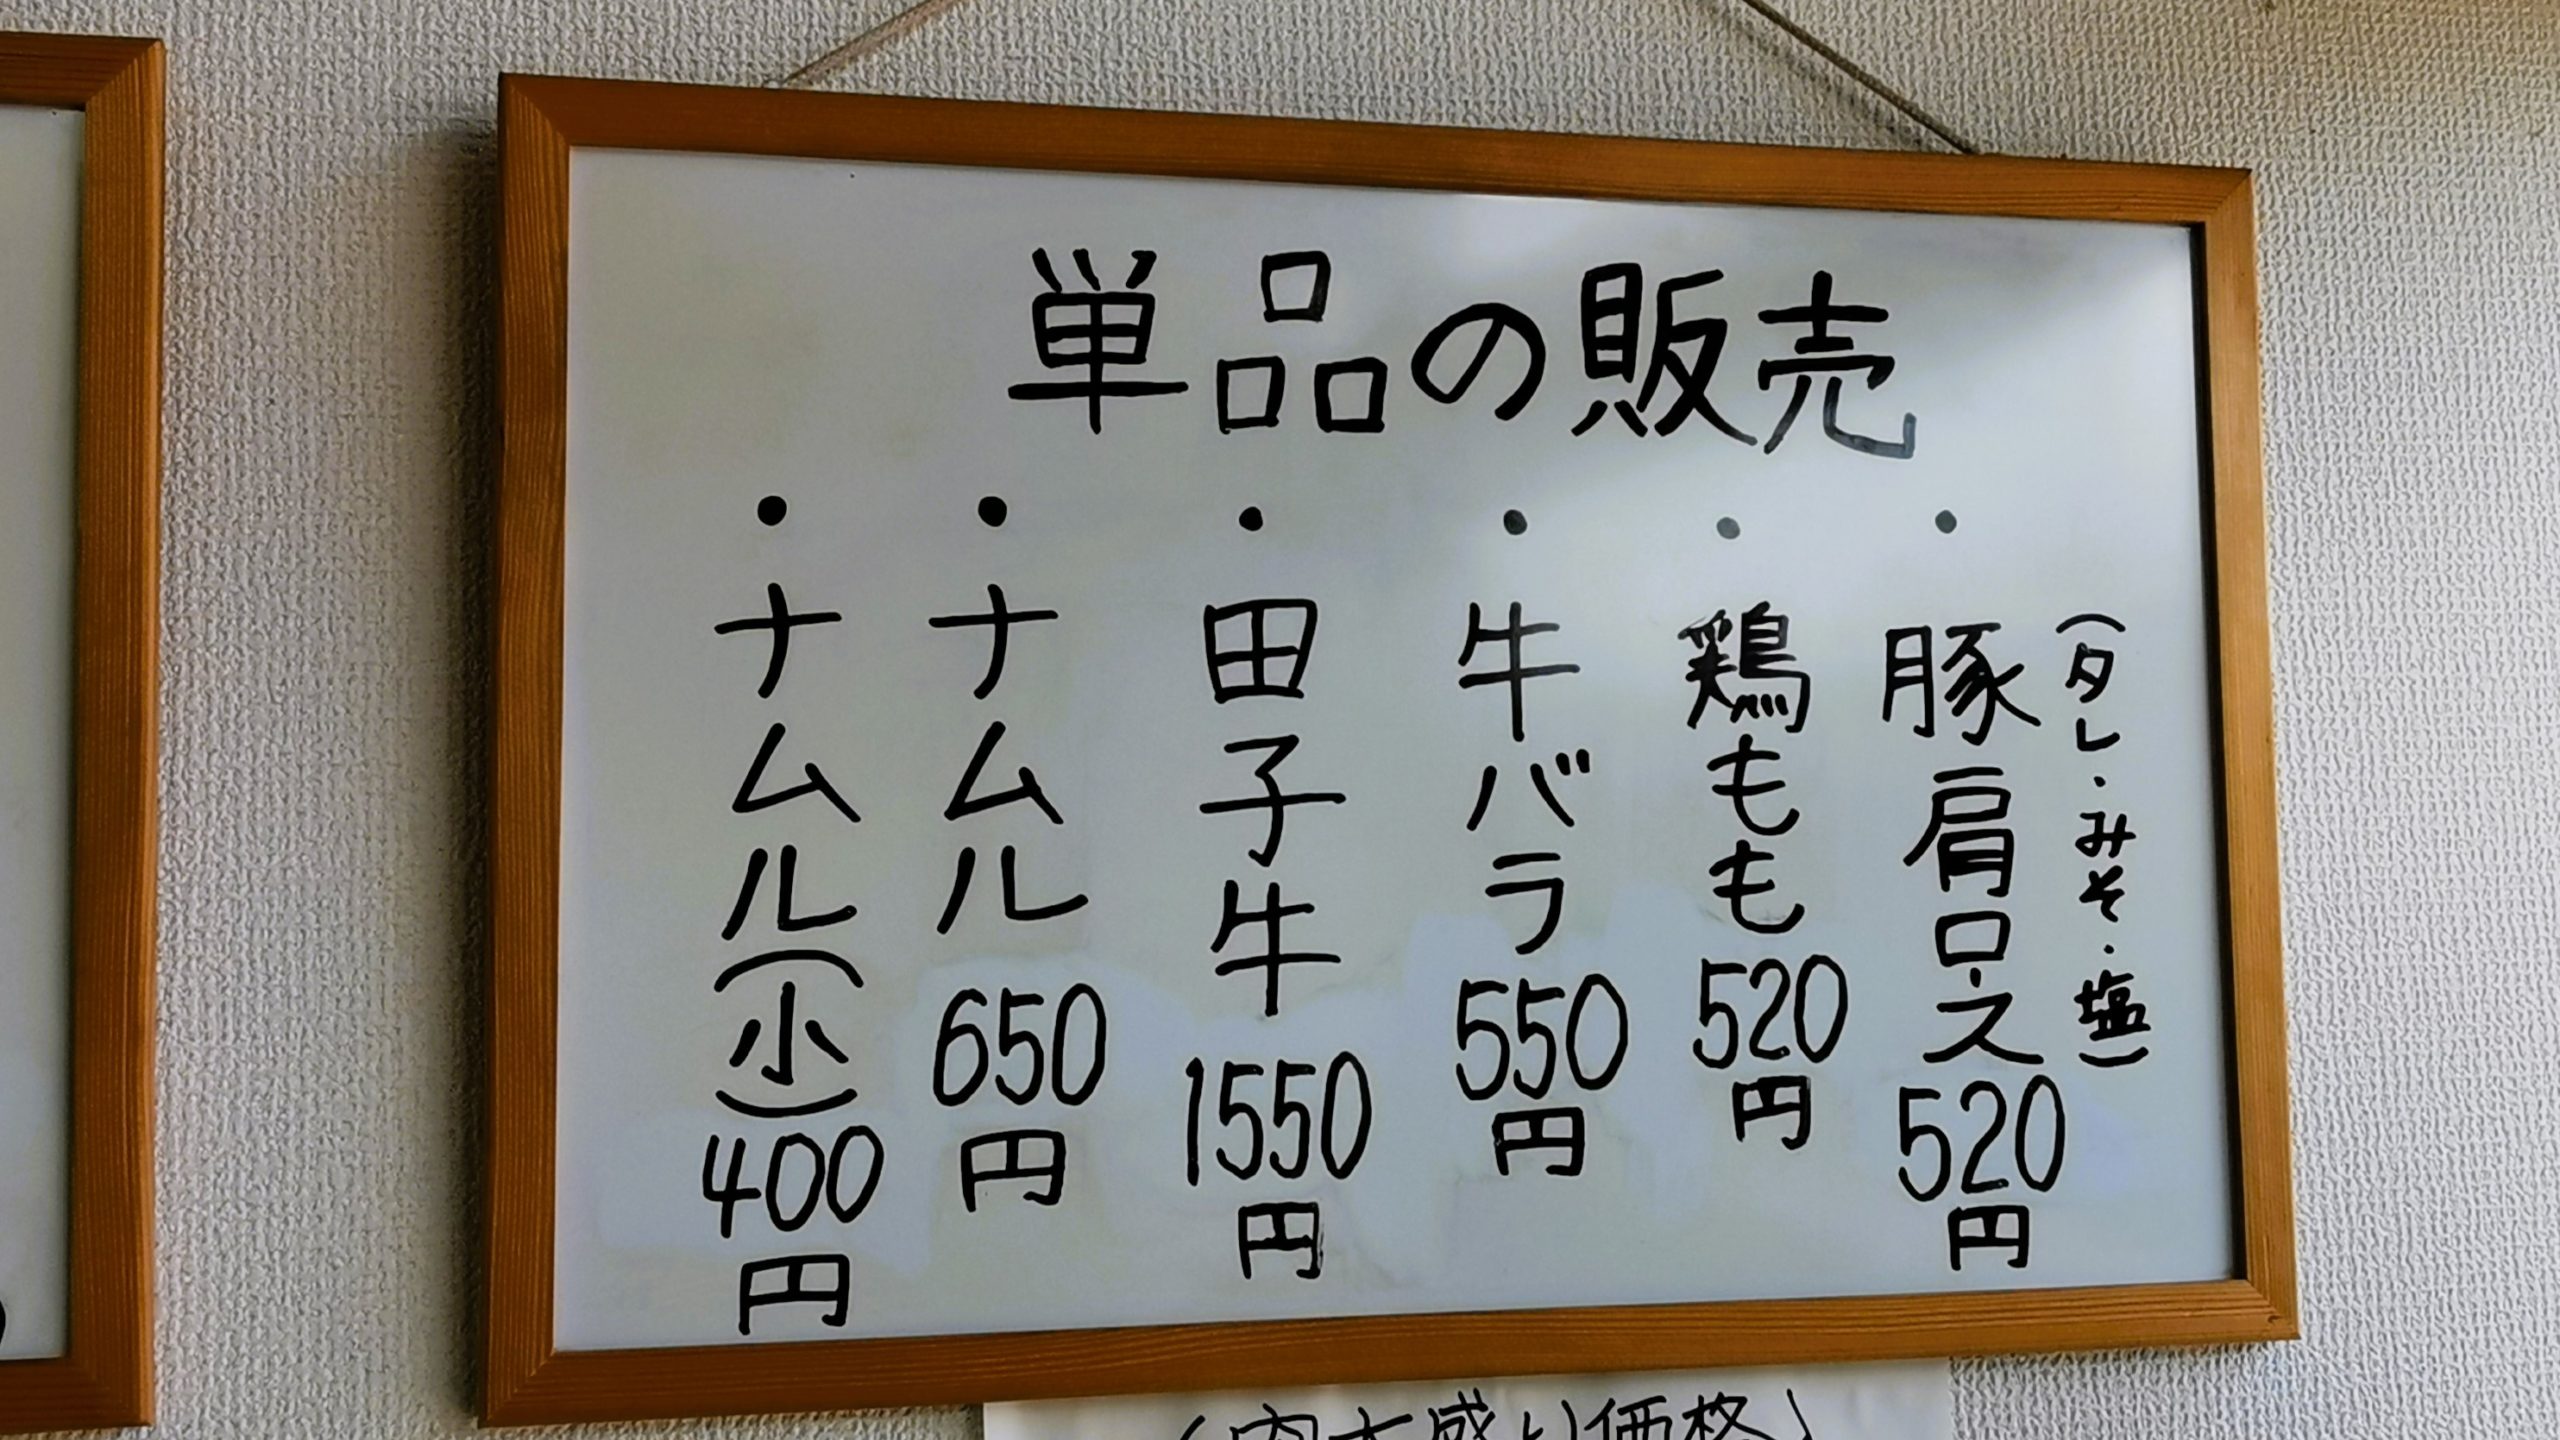 単品の販売
・豚肩ロース 520円
(タレ・みそ・塩)
・鶏もも 520円
・牛バラ 550円
・田子牛 1550円
・ナムル 650円
・ナムル(小) 400円
(肉大盛り価格)